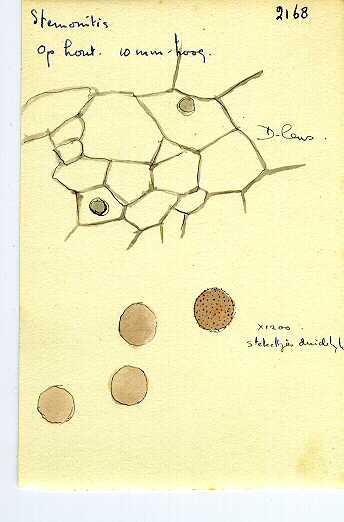 Stemonitis
2168
op hout. 10 mm. hoog.
D-lens.
x1200.
stekeltjes duidelijk